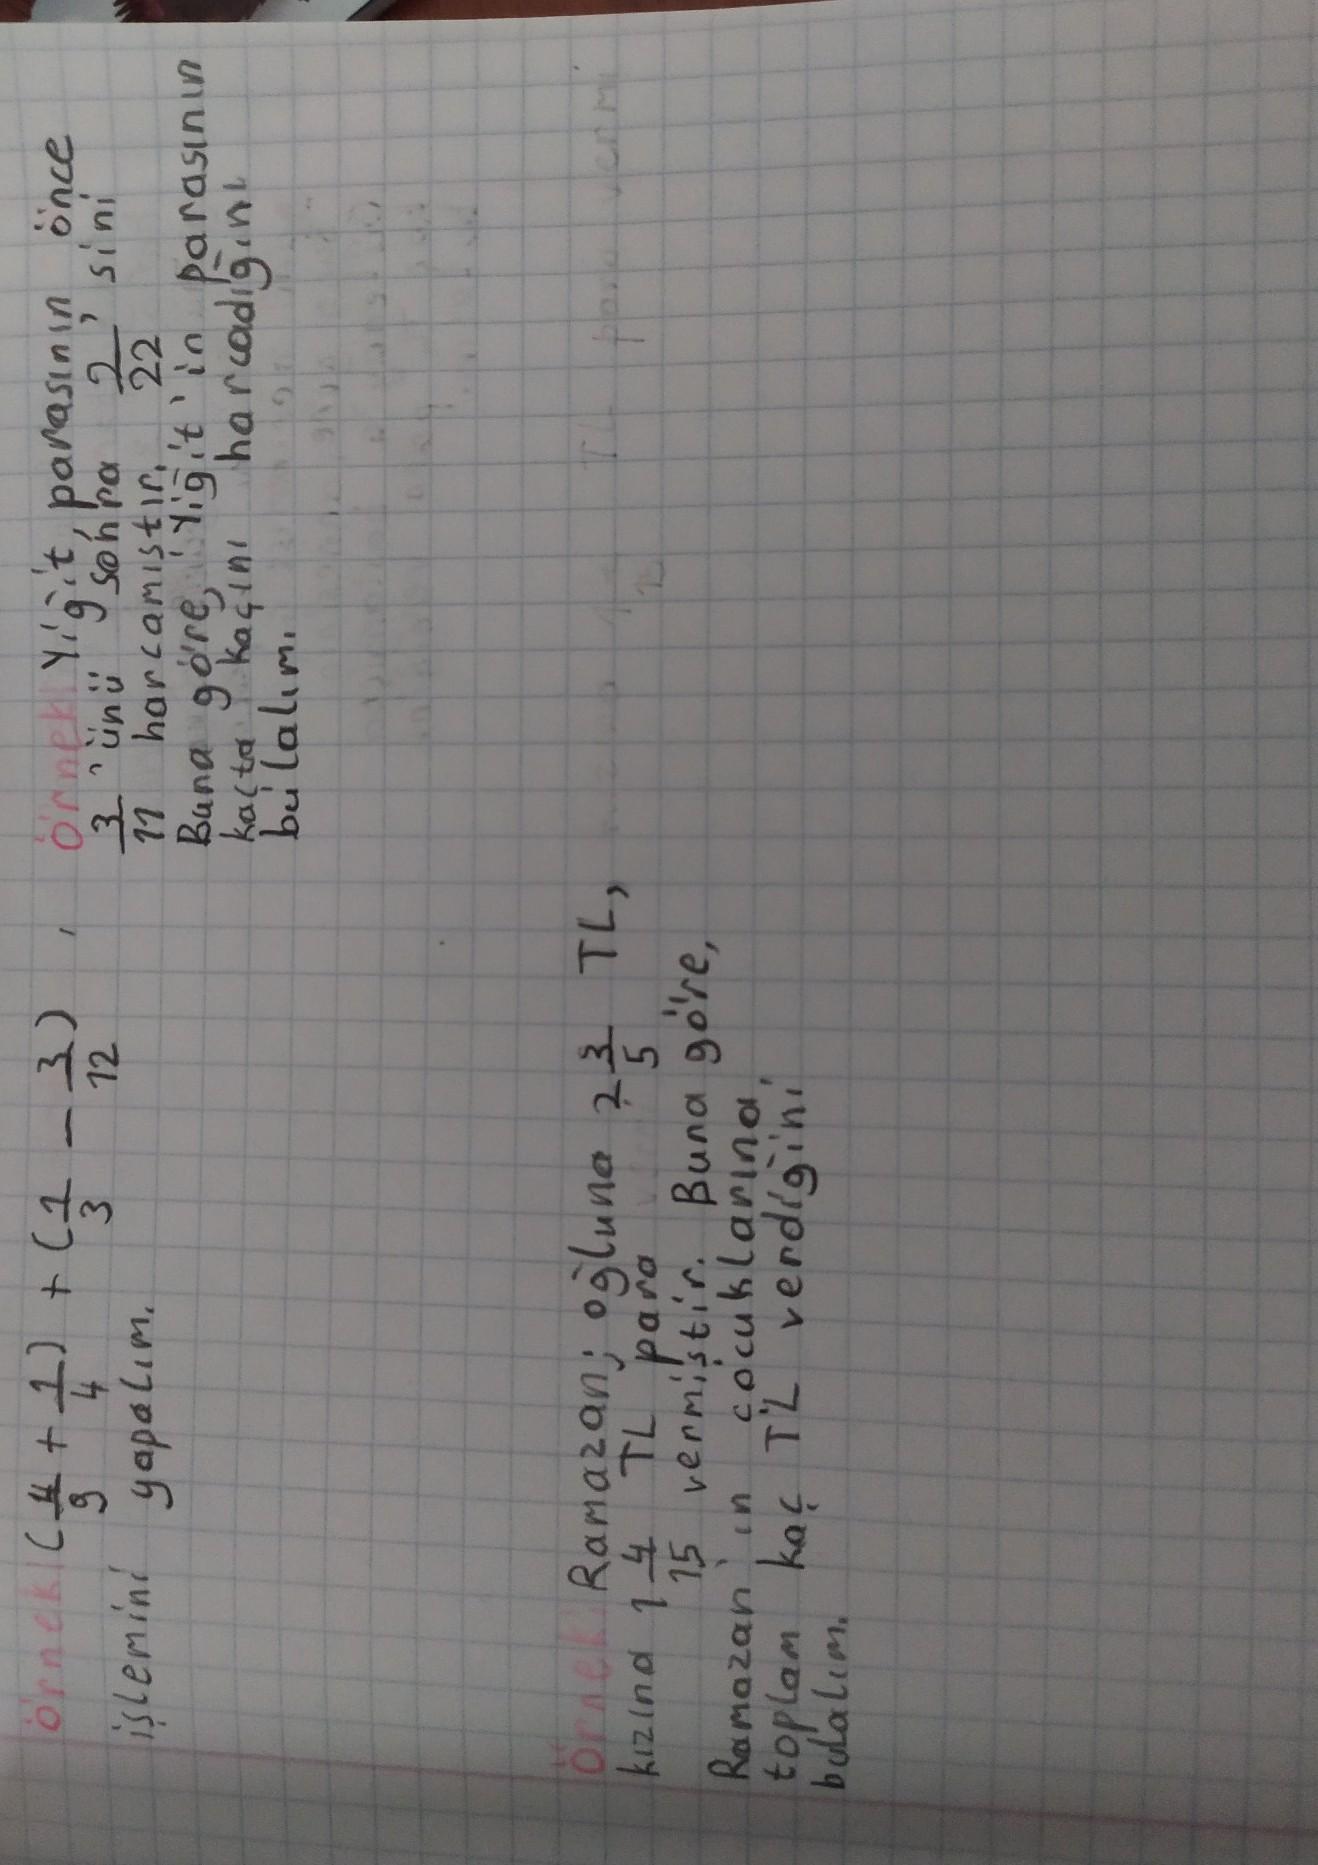 Örnek: (4/9 + 1/4) + (1/3 - 3/12)
işlemini yapalım.
Örnek: Yiğit, parasının önce
3/11'ünü sonra 2/22'sini
harcamıstır.
Buna göre, Yiğit'in parasının
kaçta kaçını harcadığını
bulalım.
Örnek: Ramazan; oğluna 2 3/5 TL,
kızına 1 4/15 TL para
vermiştir. Buna göre,
Ramazan'ın çocuklarına,
toplam kaç TL verdiğini
bulalım.